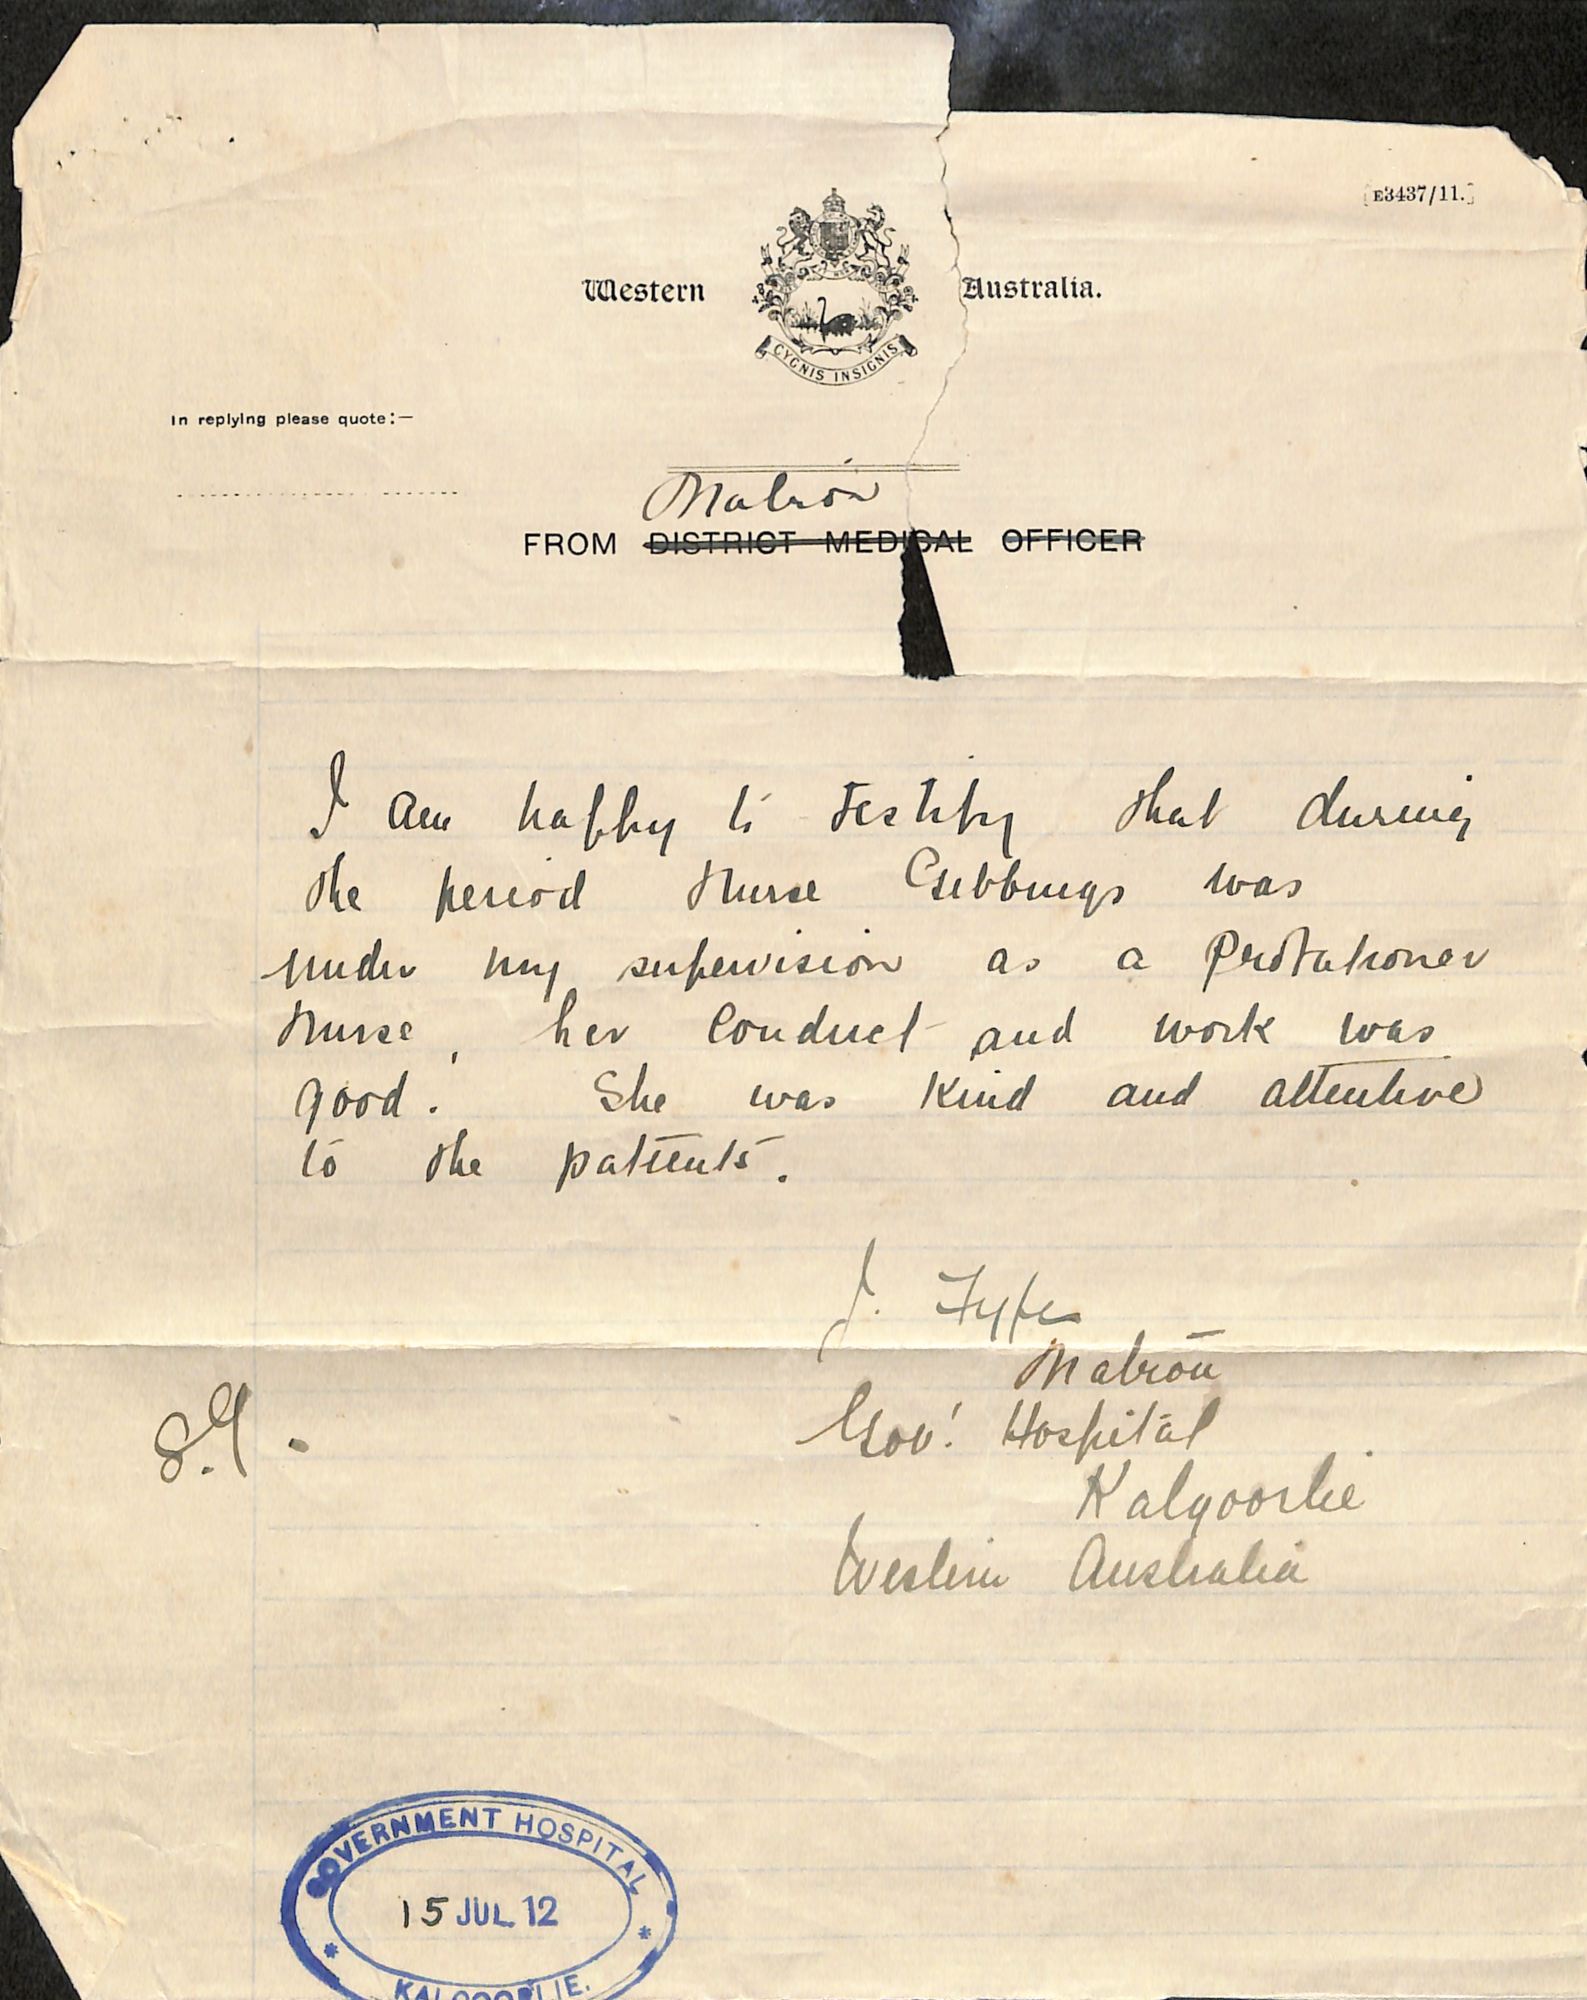 [E3437/11.]
Western Australia.
CYGNIS INSIGNIS
In replying please quote:—
Matron
FROM DISTRICT MEDICAL OFFICER
I am happy to testify that during
the period Nurse Gibbings was
under my supervision as a Probationer
Nurse, her conduct and work was
good. She was kind and attentive
to the patients.
J. Fyfe
Matron
Gov! Hospital
Kalgoorlie
Western Australia
GOVERNMENT HOSPITAL
15 JUL. 12
KALGOORLIE.